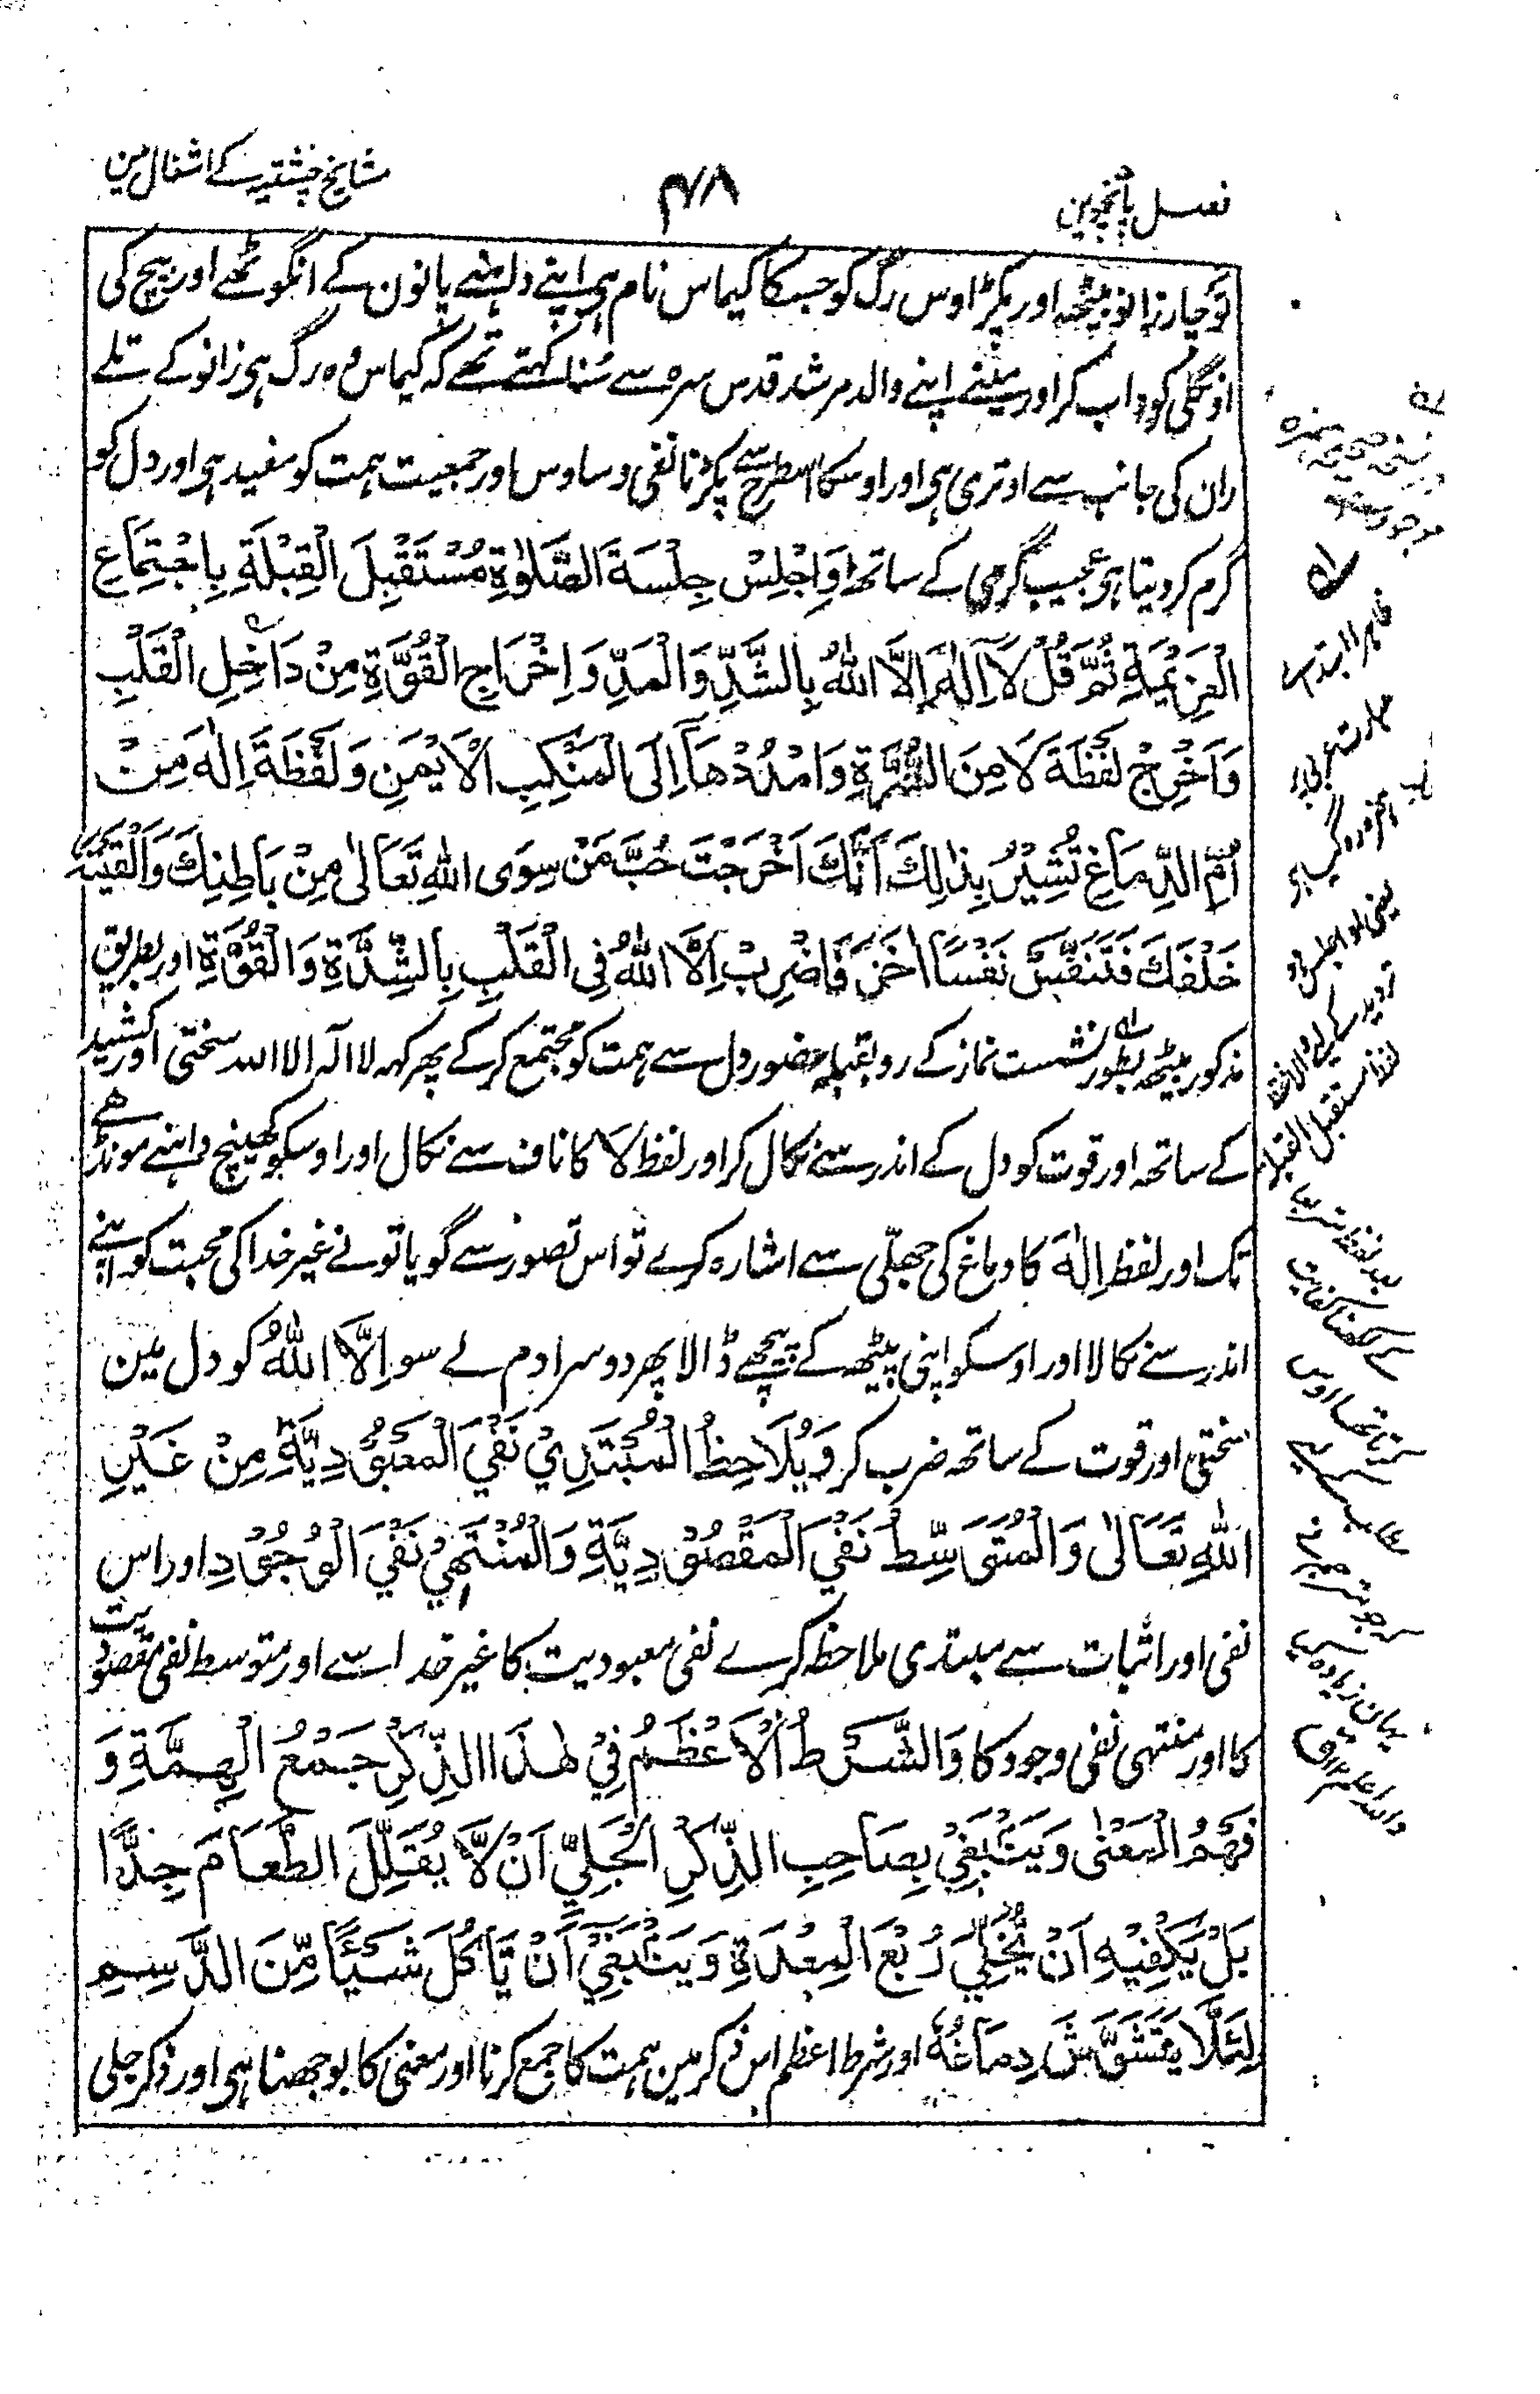 فصل پانچوین
۴۸
مشایخ چشتیہ کے اشغال مین
تو چار زانو بیٹھہ اور پکڑ اوس رگ کو جسکا کیماس نام ہی اپنے داہنے پانون کے انگوٹھے اور بیچ کی
اونگلی کو داب کر اور مینے اپنے والد مرشد قدس سرہ سے سُنا کہتے تھے کہ کیماس وہ رگ ہی زانو کے تلے
ران کی جانب سے اوتری ہی اور اوسکا اسطرح سے پکڑنا نفی وساوس اور جمعیت ہمت کو مفید ہی اور دل کو
گرم کر دیتا ہی عجیب گرمی کے ساتھ اَوِ اجْلِسْ جِلْسَةَ الصَّلٰوةِ مُسْتَقْبِلَ الْقِبْلَةِ بِاجْتِمَاعِ
الْعَزِيْمَةِ ثُمَّ قُلْ لَا اِلٰهَ اِلَّا اللهُ بِالشَّدِّ وَالْمَدِّ وَ اِخْرَاجِ الْقُوَّةِ مِنْ دَاخِلِ الْقَلْبِ
وَاَخْرِجْ لَفْظَةَ لَا مِنَ السُّرَّةِ وَامْدُدْهَآ اِلَى الْمَنْكِبِ الْاَيْمَنِ وَلَفْظَةَ اِلٰهَ مِنْ
اُمِّ الدِّمَاغِ تُشِيْرُ بِذٰلِكَ اَنَّكَ اَخْرَجْتَ حُبَّ مَنْ سِوَى اللهِ تَعَالٰى مِنْ بَاطِنِكَ وَاَلْقَيْتَهٗ
خَلْفَكَ فَتَنَفَّسْ نَفَسًا اٰخَرَ فَاضْرِبْ اِلَّا اللهُ فِي الْقَلْبِ بِالشِّدَّةِ وَالْقُوَّةِ اور بطریق
مذکور بیٹھہ بطور نشست نماز کے رو بقبلہ حضور دل سے ہمت کو مجتمع کر کے پھر کہہ لا الہ الا اللہ سختی اور کشید
کے ساتھہ اور قوت کو دل کے اندر سے نکال کر اور لفظ لَا کا ناف سے نکال اور اوسکو کھینچ داہنے مونڈھے
تک اور لفظ اِلٰهَ کا دماغ کی جھلّی سے اشارہ کرے تو اس تصور سے گویا تو نے غیر خدا کی محبت کو اپنے
اندر سے نکالا اور اوسکو اپنی پیٹھہ کے پیچھے ڈالا پھر دوسرا دم لے سو اِلَّا اللهُ کو دل مین
سختی اور قوت کے ساتھ ضرب کر وَيُلَاحِظُ الْمُبْتَدِيْ نَفْيَ الْمَعْبُوْدِيَّةِ مِنْ غَيْرِ
اللهِ تَعَالٰى وَالْمُتَوَسِّطُ نَفْيَ الْمَقْصُوْدِيَّةِ وَالْمُنْتَهِيْ نَفْيَ الْوُجُوْدِ اور اس
نفی اور اثبات سے مبتدی ملاحظہ کرے نفی معبودیت کا غیر خدا سے اور متوسط نفی مقصودیت
کا اور منتہی نفی وجود کا وَالشَّرْطُ الْاَعْظَمُ فِيْ هٰذَا الذِّكْرِ جَمْعُ الْهِمَّةِ وَ
فَهْمُ الْمَعْنٰى وَيَنْبَغِيْ بِصَاحِبِ الذِّكْرِ الْجَلِيِّ اَنْ لَّا يُقَلِّلَ الطَّعَامَ جِدًّا
بَلْ يَكْفِيْهِ اَنْ يُّخَلِّيَ رُبْعَ الْمِعْدَةِ وَيَنْبَغِيْ اَنْ يَّاْكُلَ شَيْئًا مِّنَ الدَّسِمِ
لِئَلَّا يَتَشَوَّشَ دِمَاغُهٗ اور شرط اعظم اس ذکر مین ہمت کا جمع کرنا اور معنی کا بوجھنا ہی اور ذکر جلی